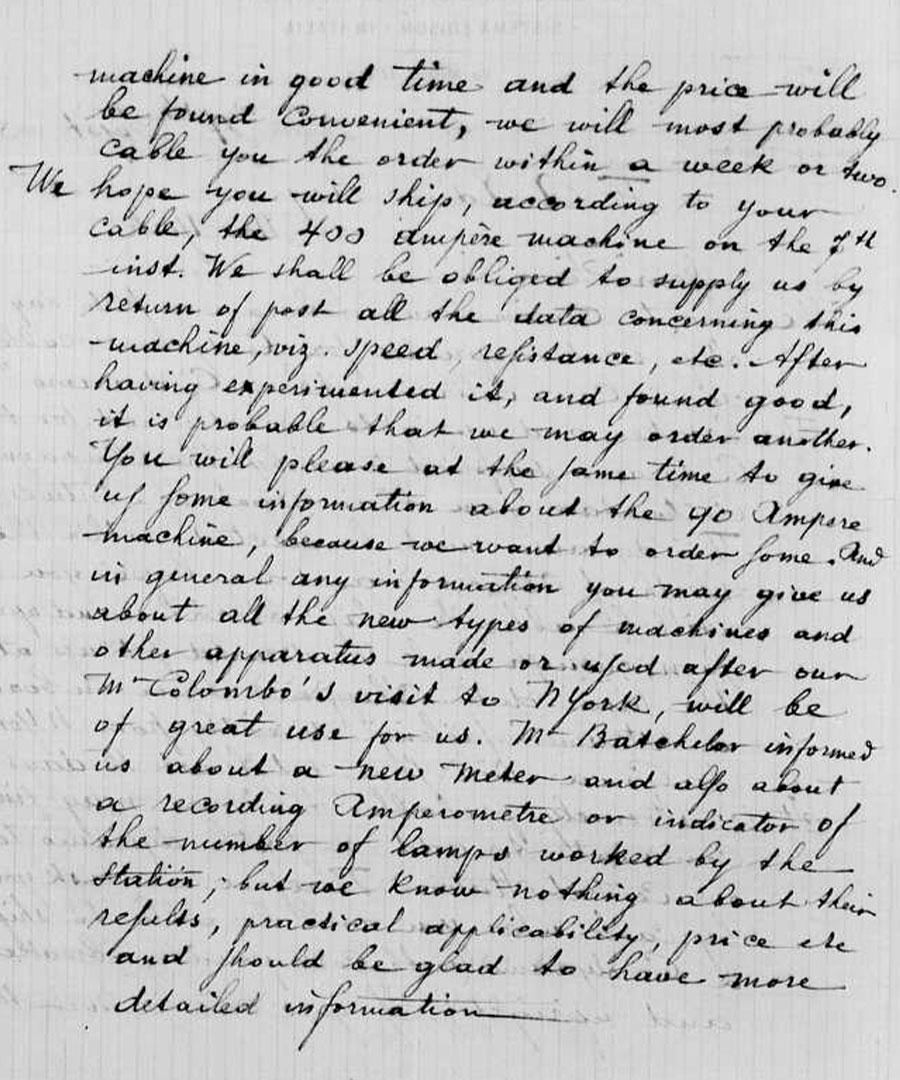 machine in good time and the price will
be found convenient, we will most probably
cable you the order within a week or two.
We hope you will ship, according to your
cable, the 400 ampère machine on the 7th
inst. We shall be obliged to supply us by
return of post all the data concerning this
machine, viz. speed, resistance, etc. After
having experimented it, and found good,
it is probable that we may order another.
You will please at the same time to give
us some information about the 90 Ampere
machine, because we want to order some. And
in general any information you may give us
about all the new types of machines and
other apparatus made or used after our
Mr Colombo's visit to NYork, will be
of great use for us. Mr Batchelor informed
us about a new meter and also about
a recording Amperometre or indicator of
the number of lamps worked by the
Station; but we know nothing about their
results, practical applicability, price etc
and should be glad to have more
detailed information